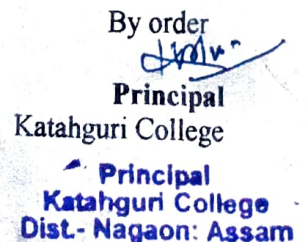 By order
Principal
Katahguri College
Principal
Katahguri College
Dist.- Nagaon: Assam